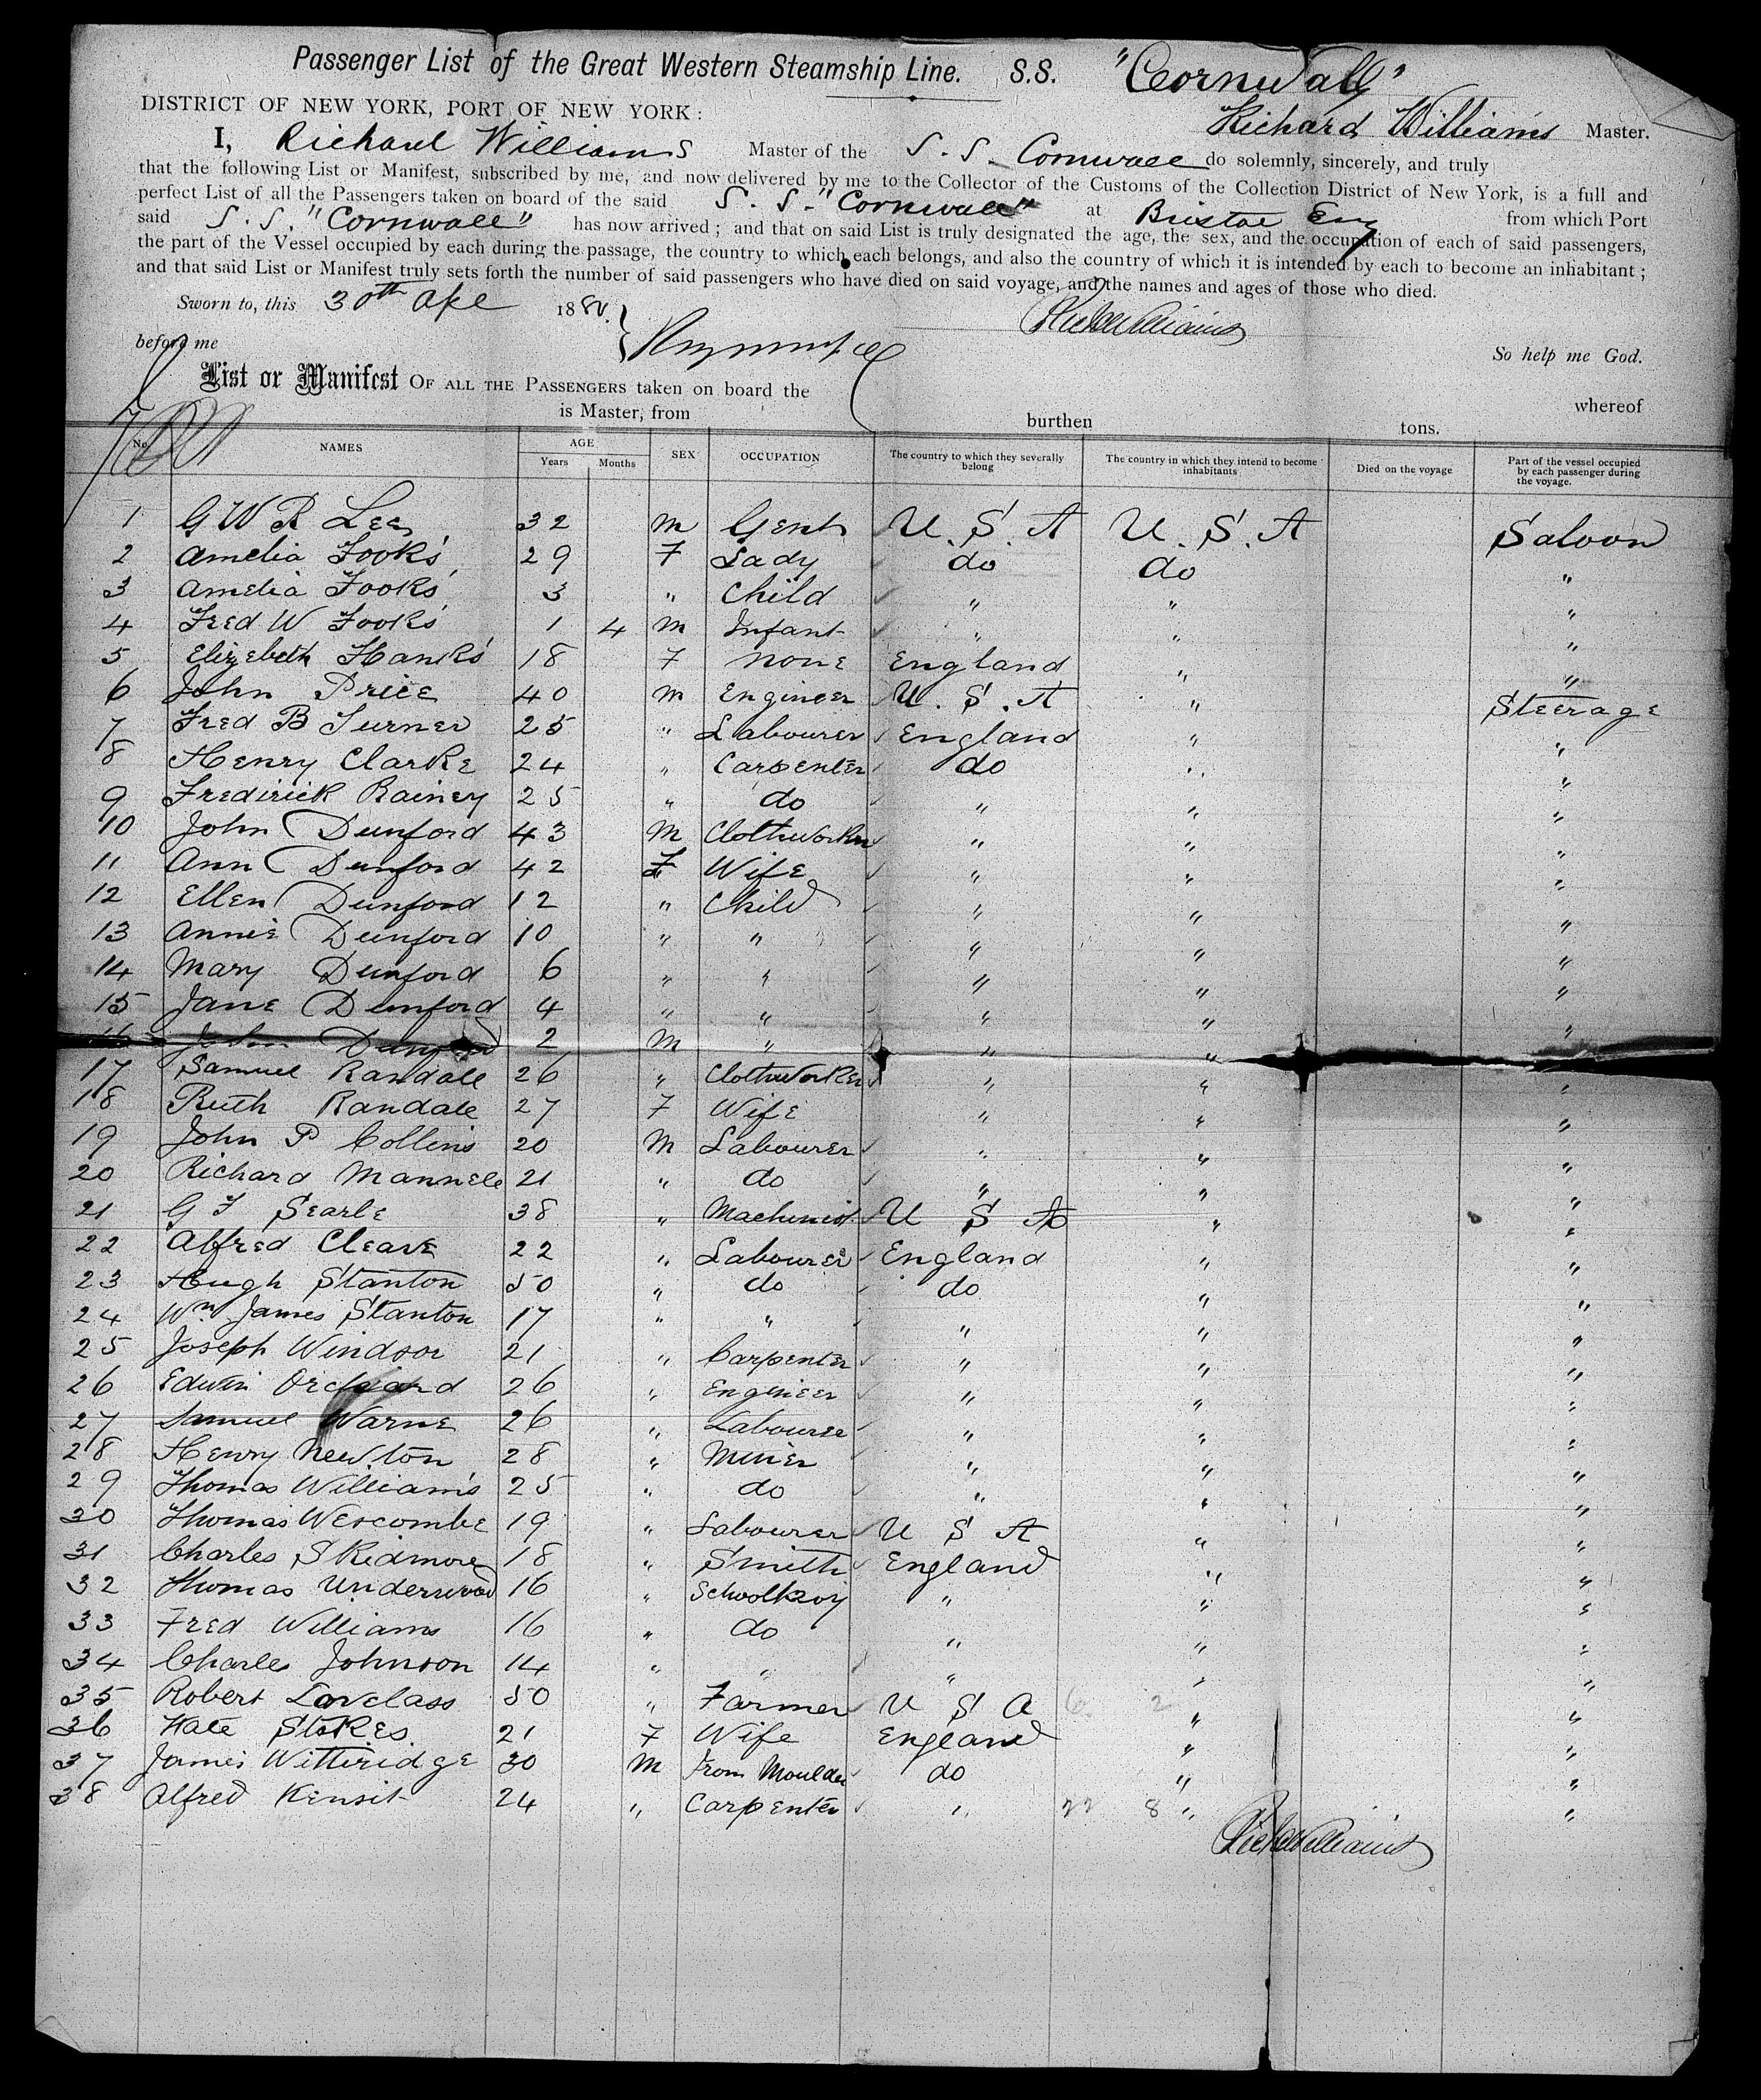 Passenger List of the Great Western Steamship Line. S.S. "Cornwall"
DISTRICT OF NEW YORK, PORT OF NEW YORK:
Richard Williams Master.
I, Richard Williams Master of the S.S. Cornwall do solemnly, sincerely, and truly
that the following List or Manifest, subscribed by me, and now delivered by me to the Collector of the Customs of the Collection District of New York, is a full and
perfect List of all the Passengers taken on board of the said S.S. "Cornwall" at Bristol Eng from which Port
said S.S. "Cornwall" has now arrived; and that on said List is truly designated the age, the sex, and the occupation of each of said passengers,
the part of the Vessel occupied by each during the passage, the country to which each belongs, and also the country of which it is intended by each to become an inhabitant;
and that said List or Manifest truly sets forth the number of said passengers who have died on said voyage, and the names and ages of those who died.
Sworn to, this 30th Apl 1880. Rich Williams
before me So help me God.
List or Manifest OF ALL THE PASSENGERS taken on board the whereof
is Master, from burthen tons.
No. NAMES AGE Years Months SEX OCCUPATION The country to which they severally belong The country in which they intend to become inhabitants Died on the voyage Part of the vessel occupied by each passenger during the voyage.
1 G W R Lee 32 M Gent U.S.A U.S.A Saloon
2 Amelia Fooks 29 F Lady do do "
3 Amelia Fooks 3 " Child " " "
4 Fred W Fooks 1 4 M Infant " " "
5 Elizebeth Hanks 18 F None England " "
6 John Price 40 M Engineer U.S.A " Steerage
7 Fred B Turner 25 " Labourer England " "
8 Henry Clarke 24 " Carpenter do " "
9 Fredirick Rainey 25 " do " " "
10 John Dunford 43 M Clothworker " " "
11 Ann Dunford 42 F Wife " " "
12 Ellen Dunford 12 " Child " " "
13 Annie Dunford 10 " " " " "
14 Mary Dunford 6 " " " " "
15 Jane Dunford 4 " " " " "
16 John Dunford 2 M " " " "
17 Samuel Randall 26 " Clothworker " " "
18 Ruth Randall 27 F Wife " " "
19 John P Collins 20 M Labourer " " "
20 Richard Mannell 21 " do " " "
21 G F Searle 38 " Machinist U S A " "
22 Alfred Cleave 22 " Labourer England " "
23 Hugh Stanton 50 " do do " "
24 Wm James Stanton 17 " " " " "
25 Joseph Windsor 21 " Carpenter " " "
26 Edwin Orchard 26 " Engineer " " "
27 Samuel Warne 26 " Labourer " " "
28 Henry Newton 28 " Miner " " "
29 Thomas Williams 25 " do " " "
30 Thomas Wescombe 19 " Labourer U S A " "
31 Charles Skidmore 18 " Smith England " "
32 Thomas Underwood 16 " Schoolboy " " "
33 Fred Williams 16 " do " " "
34 Charles Johnson 14 " " " " "
35 Robert Lovelass 50 " Farmer U S A 6 2 " "
36 Kate Stokes 21 F Wife England " "
37 James Witteridge 30 M Iron Moulder do " "
38 Alfred Kensit 24 " Carpenter " 22 8 " "
Rich Williams